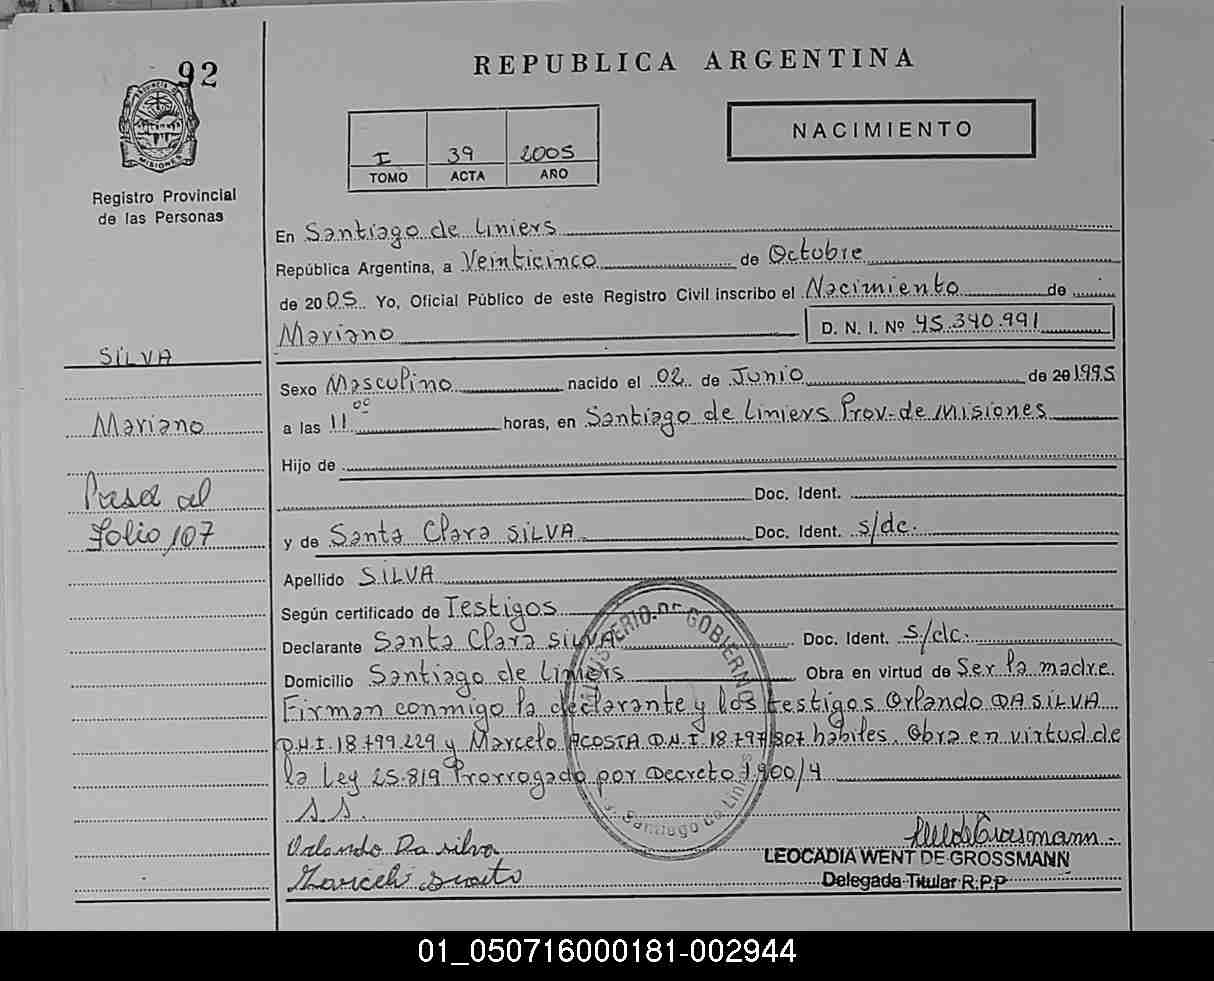 92
REPUBLICA ARGENTINA
PROVINCIA DE MISIONES
Registro Provincial
de las Personas
I 39 2005
TOMO ACTA AÑO
NACIMIENTO
En Santiago de Liniers
República Argentina, a Veinticinco de Octubre
de 2005 Yo, Oficial Público de este Registro Civil inscribo el Nacimiento de
Mariano D. N. I. Nº 45.340.991
SILVA
Sexo Masculino nacido el 02 de Junio de 20 1995
Mariano
a las 11 00 horas, en Santiago de Liniers Prov. de Misiones
Hijo de
Doc. Ident.
Pasa al
Folio 107
y de Santa Clara SILVA Doc. Ident. s/dc.
Apellido SILVA
Según certificado de Testigos
Declarante Santa Clara SILVA Doc. Ident. s/dc.
Domicilio Santiago de Liniers Obra en virtud de Ser la madre.
Firman conmigo la declarante y los testigos Orlando DA SILVA
D.N.I. 18.799.229 y Marcelo ACOSTA D.N.I. 18.797.807 hábiles. Obra en virtud de
la Ley 25.819 Prorrogado por Decreto 1.900/4
MINISTERIO DE GOBIERNO
Santiago de Liniers
S S.
Orlando Da silva
LEOCADIA WENT DE GROSSMANN
Delegada Titular R.P.P
01_050716000181-002944